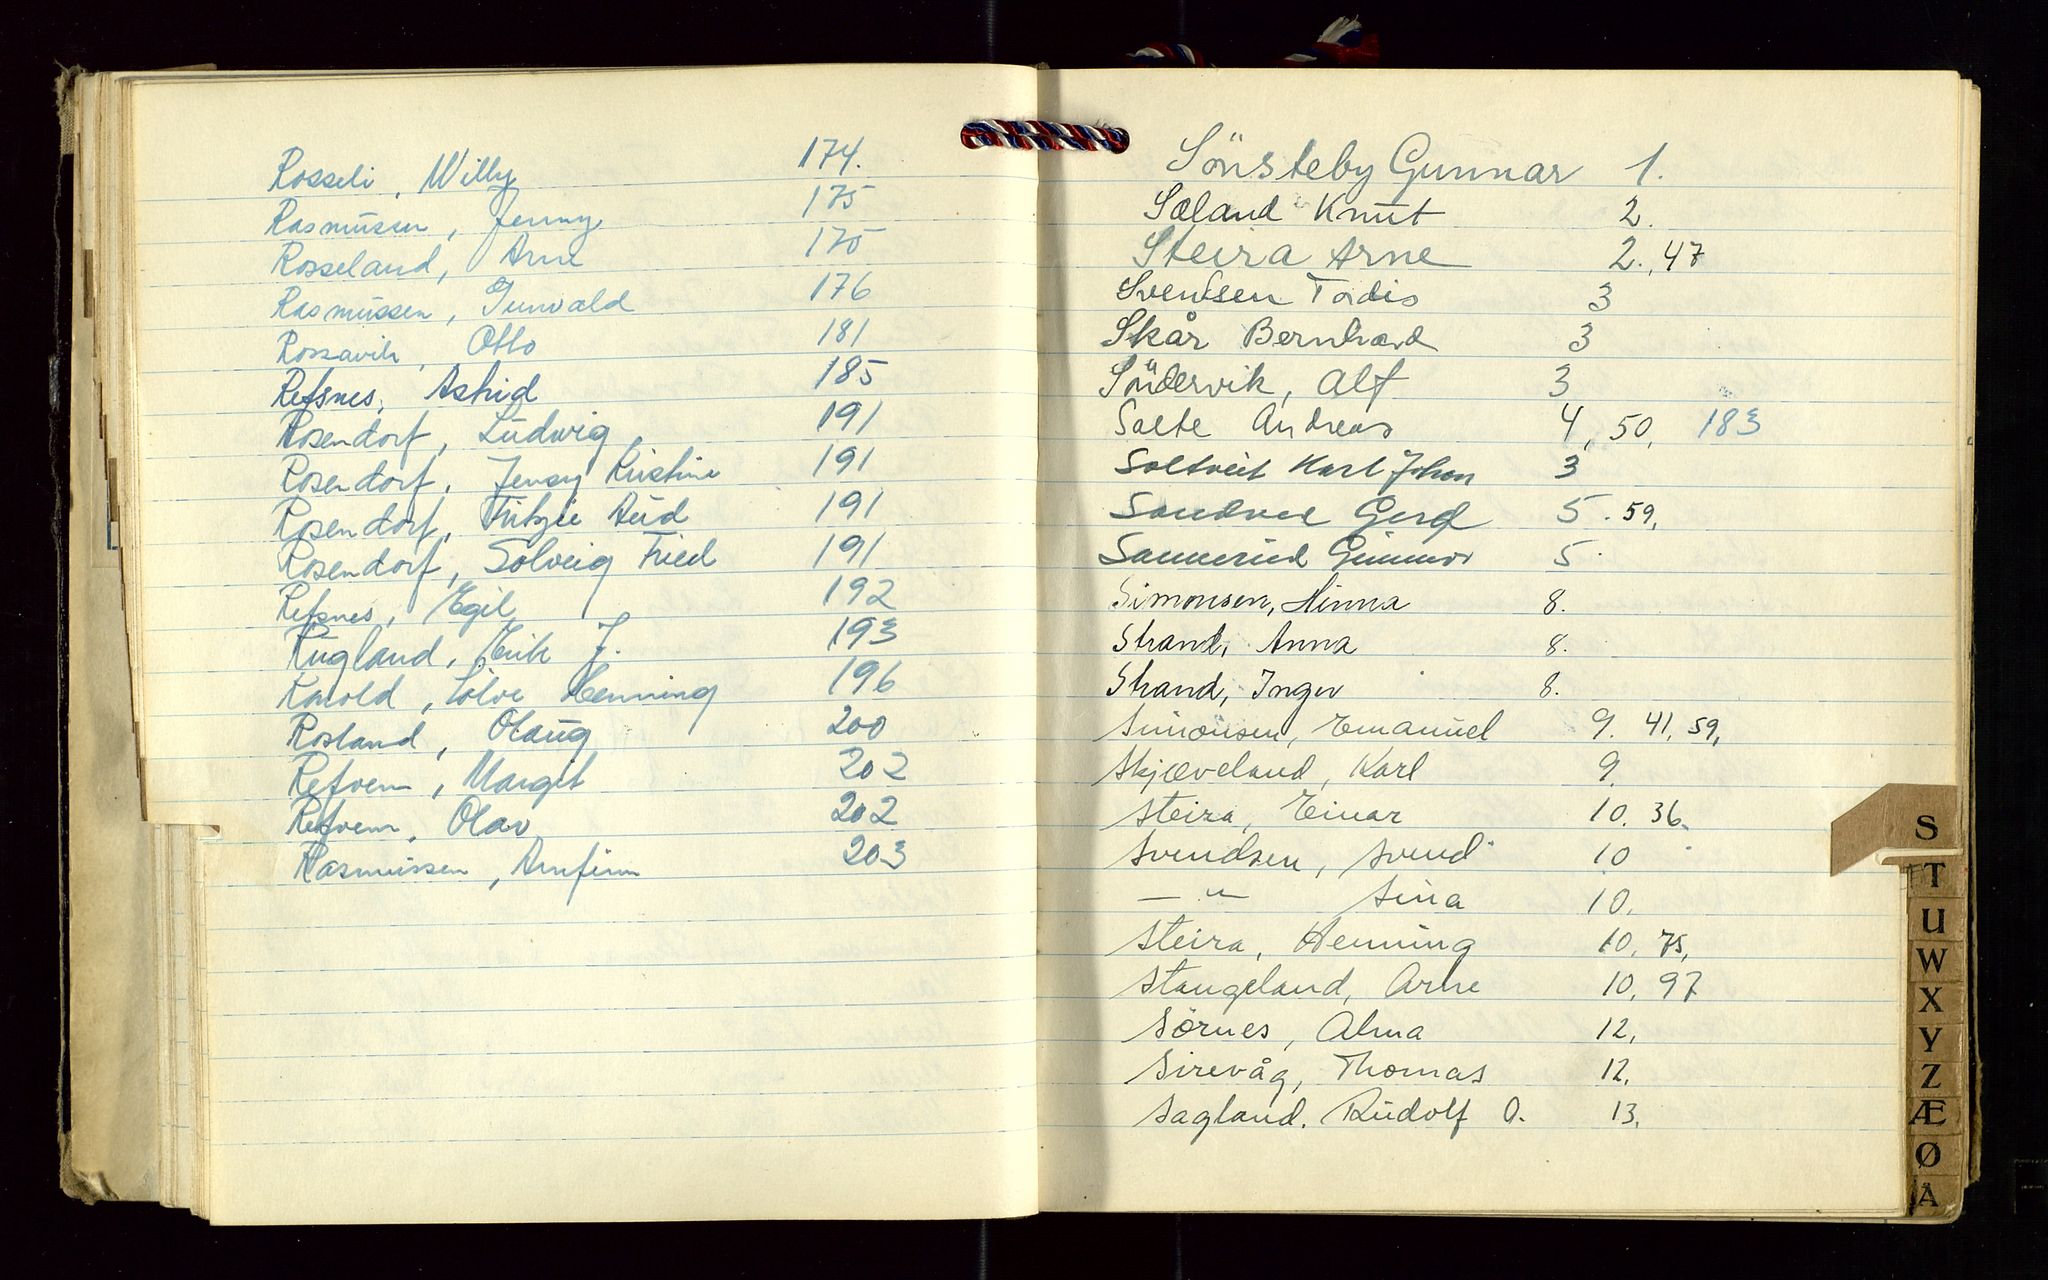 Rosseli, Willy 174.
Rasmussen, Jenny 175
Rosseland, Arne 175
Rasmussen, Gunvald 176
Rossavik, Otto 181
Refsnes, Astrid 185
Rosendorf, Ludwig, 191
Rosendorf, Jenny Kristine 191
Rosendorf, Aud 191
Rosendorf, Solveig Fried 191
Refsnes, Egil, 192
Rugland, Erik J. 193
Henning 196
Rosland, Olaug 200
Refvem, Margit 202
Refvem, Olav 202
Rasmussen, Arnfinn 203
Sönsteby Gunnar 1.
Sæland Knut 2.
Steira Arne 2., 47
Svendsen Tordis 3
Skår Bernhard 3
Söndervik, Alf 3
Salte Andreas 4, 50, 183
Saltveit Karl Johan 3
Sandvee Gerd 5. 59,
Gunnar 5.
Simonsen, Minna 8.
Strand, Anna 8.
Strand, Inger 8.
Simonsen, Emanuel 9. 41, 59,
Skjæveland, Karl 9.
Steira, Einar 10. 36.
Svendsen, Svend 10
— " — Sina 10.
Steira, Henning 10, 75,
Stangeland, Arne 10, 97
Sörnes, Alma 12,
Sirevåg, Thomas 12,
Sagland, Rudolf O. 13.
L
S
T
U
W
X
Y
Z
Æ
Ø
Å